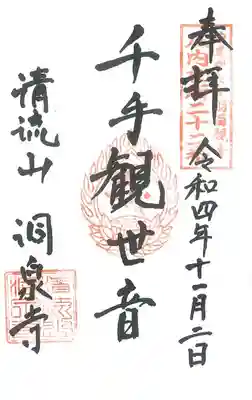 奉拝
令和四年十一月二日
千手観世音
清流山
洞泉寺